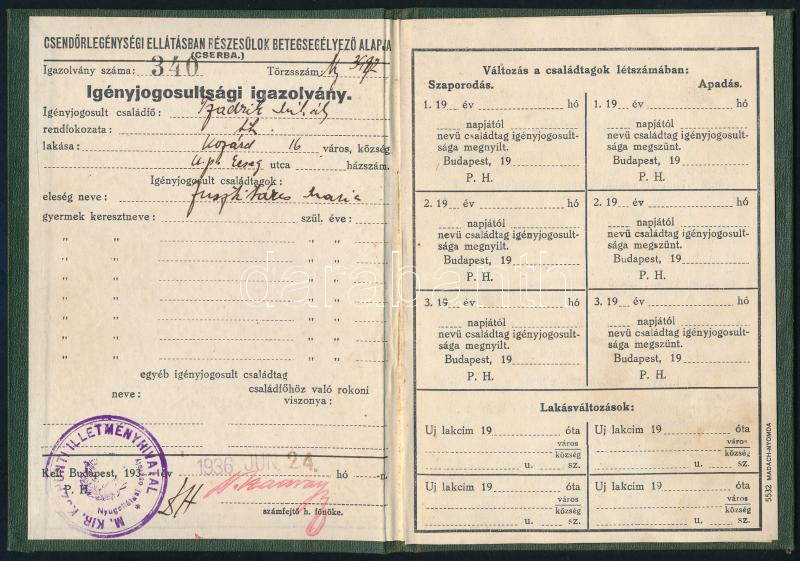 CSENDŐRLEGÉNYSÉGI ELLÁTÁSBAN RÉSZESÜLŐK BETEGSEGÉLYEZŐ ALAPJA
(CSERBA.)
Igazolvány száma: 340 Törzsszám
Igényjogosultsági igazolvány.
Igényjogosult családfő: Mihály
rendfokozata:
lakása: Kozárd 16 város, község
u.p. Ecseg utca házszám.
Igényjogosult családtagok:
eleség neve: Maria
gyermek keresztneve: szül. éve:
" " " "
" " " "
" " " "
" " " "
" " " "
" " " "
" " " "
egyéb igényjogosult családtag
neve: családfőhöz való rokoni
viszonya:
M. KIR. KÖZPONTI ILLETMÉNYHIVATAL
Kelt Budapest, 193 év 1936 JUN 24. hó -n
P. H.
számfejtő h. főnöke.
Változás a családtagok létszámában:
Szaporodás. Apadás.
1. 19 év hó
napjától
nevű családtag igényjogosult-
sága megnyilt.
Budapest, 19
P. H.
1. 19 év hó
napjától
nevű családtag igényjogosult-
sága megszünt.
Budapest, 19
P. H.
2. 19 év hó
napjától
nevű családtag igényjogosult-
sága megnyilt.
Budapest, 19
P. H.
2. 19 év hó
napjától
nevű családtag igényjogosult-
sága megszünt.
Budapest, 19
P. H.
3. 19 év hó
napjától
nevű családtag igényjogosult-
sága megnyilt.
Budapest, 19
P. H.
3. 19 év hó
napjától
nevű családtag igényjogosult-
sága megszünt.
Budapest, 19
P. H.
Lakásváltozások:
Uj lakcim 19 óta
város
község
u. sz.
Uj lakcim 19 óta
város
község
u. sz.
Uj lakcim 19 óta
város
község
u. sz.
Uj lakcim 19 óta
város
község
u. sz.
5532 MADÁCH-NYOMDA
darabanth